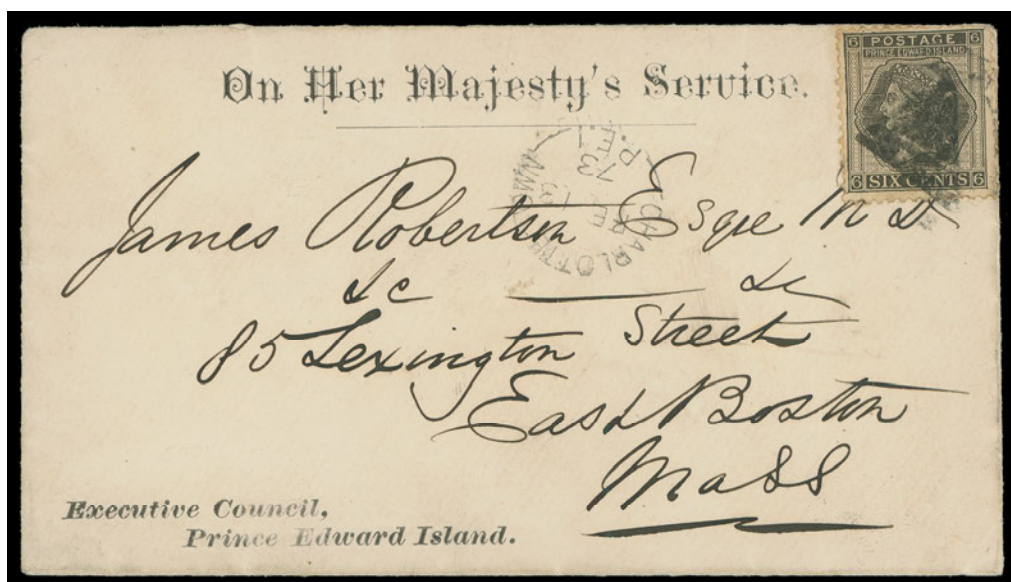 On Her Majesty's Service.
6 POSTAGE 6
PRINCE EDWARD ISLAND
6 SIX CENTS 6
CHARLOTTETOWN
P.E.I.
FE
73
James Robertson Esqre M D
&c &c
85 Lexington Street
East Boston
Mass
Executive Council,
Prince Edward Island.